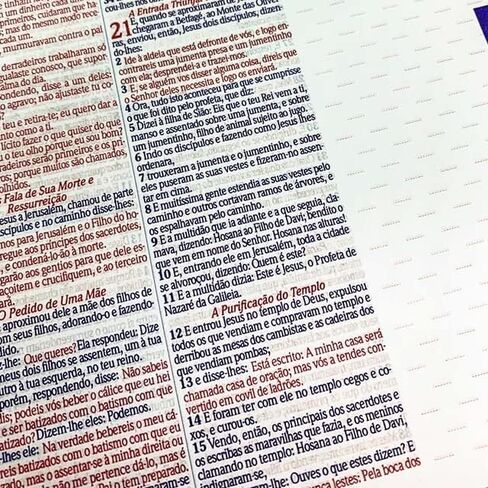 um dinheiro cada um,
dinheiro cada um.
murmuravam contra o pai
derradeiros trabalharam só
igualaste conosco, que supor-
alma do dia.
pondendo, disse a um deles:
agravo; não ajustaste tu co-
teu e retira-te; eu quero dar a
nto como a ti.
lícito fazer o que quiser do que
o teu olho porque eu sou bom
radeiros serão primeiros e os pri-
porque muitos são chamados,
olhidos.
Fala de Sua Morte e
Ressurreição
Jesus a Jerusalém, chamou de parte
discípulos e no caminho disse-lhes:
mos para Jerusalém e o Filho do ho-
regue aos príncipes dos sacerdotes,
e condená-lo-ão à morte.
garão aos gentios para que deles es-
açoitem e crucifiquem, e ao terceiro
O Pedido de Uma Mãe
aproximou dele a mãe dos filhos de
om seus filhos, adorando-o e fazendo-
lhe: Que queres? Ela respondeu: Dize
meus dois filhos se assentem, um à tua
outro à tua esquerda, no teu reino.
porém, respondendo, disse: Não sabeis
is; podeis vós beber o cálice que eu hei
e ser batizados com o batismo com que
atizado? Dizem-lhe eles: Podemos.
-lhes ele: Na verdade bebereis o meu cá-
ereis batizados com o batismo com que
tizado, mas o assentar-se à minha direita
erda não me pertence dá-lo, mas é
A Entrada Triunfal
21 E, quando se aproximaram de
chegaram a Betfagé, ao Monte das Oliv
ras, enviou, então, Jesus dois discípulos, dizen-
do-lhes:
2 Ide à aldeia que está defronte de vós, e logo en-
contrareis uma jumenta presa e um jumentinho
com ela; desprendei-a e trazei-mos.
3 E, se alguém vos disser alguma coisa, direis que
o Senhor deles necessita e logo os enviará.
4 Ora, tudo isto aconteceu para que se cumprisse
o que foi dito pelo profeta, que diz:
5 Dizei à filha de Sião: Eis que o teu Rei vem a ti,
manso e assentado sobre uma jumenta, e sobre
um jumentinho, filho de animal sujeito ao jugo.
6 Indo os discípulos e fazendo como Jesus lhes
ordenara,
7 trouxeram a jumenta e o jumentinho, e sobre
eles puseram as suas vestes e fizeram-no assen-
tar em cima.
8 E muitíssima gente estendia as suas vestes pelo
caminho e outros cortavam ramos de árvores, e
os espalhavam pelo caminho.
9 E a multidão que ia adiante e a que seguia, cla-
mava, dizendo: Hosana ao Filho de Davi; bendito o
que vem em nome do Senhor. Hosana nas alturas!
10 E, entrando ele em Jerusalém, toda a cidade
se alvoroçou, dizendo: Quem é este?
11 E a multidão dizia: Este é Jesus, o Profeta de
Nazaré da Galileia.
A Purificação do Templo
12 E entrou Jesus no templo de Deus, expulsou
todos os que vendiam e compravam no templo e
derribou as mesas dos cambistas e as cadeiras dos
que vendiam pombas;
13 e disse-lhes: Está escrito: A minha casa será
chamada casa de oração; mas vós a tendes con-
vertido em covil de ladrões.
14 E foram ter com ele no templo cegos e co-
xos, e curou-os.
15 Vendo, então, os principais dos sacerdotes e
os escribas as maravilhas que fazia, e os meninos
clamando no templo: Hosana ao Filho de Davi,
indignaram-se,
16 e disseram-lhe: Ouves o que estes dizem? E
lestes: Pela boca dos